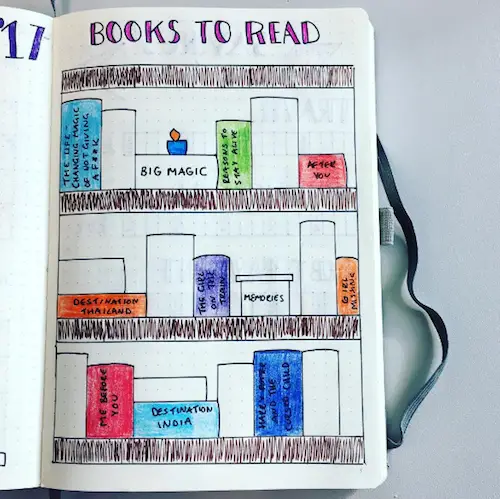 '17
BOOKS TO READ
THE LIFE-
CHANGING MAGIC
OF NOT GIVING
A F**K
BIG MAGIC
REASONS TO
STAY ALIVE
AFTER
YOU
DESTINATION
THAILAND
THE GIRL
ON THE
TRAIN
MEMORIES
GIRL
MISSING
ME BEFORE
YOU
DESTINATION
INDIA
HARRY POTTER
AND THE
CURSED CHILD